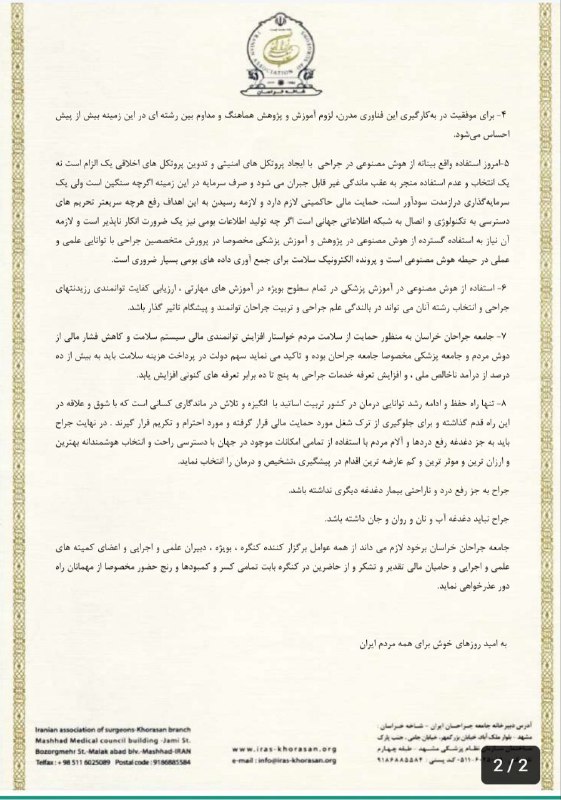 ۴- برای موفقیت در به‌کارگیری این فناوری مدرن، لزوم آموزش و پژوهش هماهنگ و مداوم بین رشته ای در این زمینه بیش از پیش
احساس می‌شود.
۵-امروز استفاده واقع بینانه از هوش مصنوعی در جراحی با ایجاد پروتکل های امنیتی و تدوین پروتکل های اخلاقی یک الزام است نه
یک انتخاب و عدم استفاده منجر به عقب ماندگی غیر قابل جبران می شود و صرف سرمایه در این زمینه اگرچه سنگین است ولی یک
سرمایه‌گذاری درازمدت سودآور است، حمایت مالی حاکمیتی لازم دارد و لازمه رسیدن به این اهداف رفع هرچه سریعتر تحریم های
دسترسی به تکنولوژی و اتصال به شبکه اطلاعاتی جهانی است اگر چه تولید اطلاعات بومی نیز یک ضرورت انکار ناپذیر است و لازمه
آن نیاز به استفاده گسترده از هوش مصنوعی در پژوهش و آموزش پزشکی مخصوصا در پرورش متخصصین جراحی با توانایی علمی و
عملی در حیطه هوش مصنوعی است و پرونده الکترونیک سلامت برای جمع آوری داده های بومی بسیار ضروری است.
۶- استفاده از هوش مصنوعی در آموزش پزشکی در تمام سطوح بویژه در آموزش های مهارتی ، ارزیابی کفایت توانمندی رزیدنتهای
جراحی و انتخاب رشته آنان می تواند در بالندگی علم جراحی و تربیت جراحان توانمند و پیشگام تاثیر گذار باشد.
۷- جامعه جراحان خراسان به منظور حمایت از سلامت مردم خواستار افزایش توانمندی مالی سیستم سلامت و کاهش فشار مالی از
دوش مردم و جامعه پزشکی مخصوصا جامعه جراحان بوده و تاکید می نماید سهم دولت در پرداخت هزینه سلامت باید به بیش از ده
درصد از درآمد ناخالص ملی ، و افزایش تعرفه خدمات جراحی به پنج تا ده برابر تعرفه های کنونی افزایش یابد.
۸- تنها راه حفظ و ادامه رشد توانایی درمان در کشور تربیت اساتید با انگیزه و تلاش در ماندگاری کسانی است که با شوق و علاقه در
این راه قدم گذاشته و برای جلوگیری از ترک شغل مورد حمایت مالی قرار گرفته و مورد احترام و تکریم قرار گیرند . در نهایت جراح
باید به جز دغدغه رفع دردها و آلام مردم با استفاده از تمامی امکانات موجود در جهان با دسترسی راحت و انتخاب هوشمندانه بهترین
و ارزان ترین و موثر ترین و کم عارضه ترین اقدام در پیشگیری ،تشخیص و درمان را انتخاب نماید.
جراح به جز رفع درد و ناراحتی بیمار دغدغه دیگری نداشته باشد.
جراح نباید دغدغه آب و نان و روان و جان داشته باشد.
جامعه جراحان خراسان برخود لازم می داند از همه عوامل برگزار کننده کنگره ، بویژه ، دبیران علمی و اجرایی و اعضای کمیته های
علمی و اجرایی و حامیان مالی تقدیر و تشکر و از حاضرین در کنگره بابت تمامی کسر و کمبودها و رنج حضور مخصوصا از مهمانان راه
دور عذرخواهی نماید.
به امید روزهای خوش برای همه مردم ایران
Iranian association of surgeons-Khorasan branch
Mashhad Medical council building -Jami St.
Bozorgmehr St.-Malak abad blv.-Mashhad-IRAN
Telfax : + 98 511 6025089 Postal code : 9186885584
www.iras-khorasan.org
e-mail : info@iras-khorasan.org
آدرس دبیرخانه جامعه جراحان ایران - شاخه خراسان
مشهد - بلوار ملک آباد، خیابان بزرگمهر، خیابان جامی، جنب پارک
نظام پزشکی مشهد - طبقه چهارم
کد پستی : ۹۱۸۶۸۸۵۵۸۴
2/2